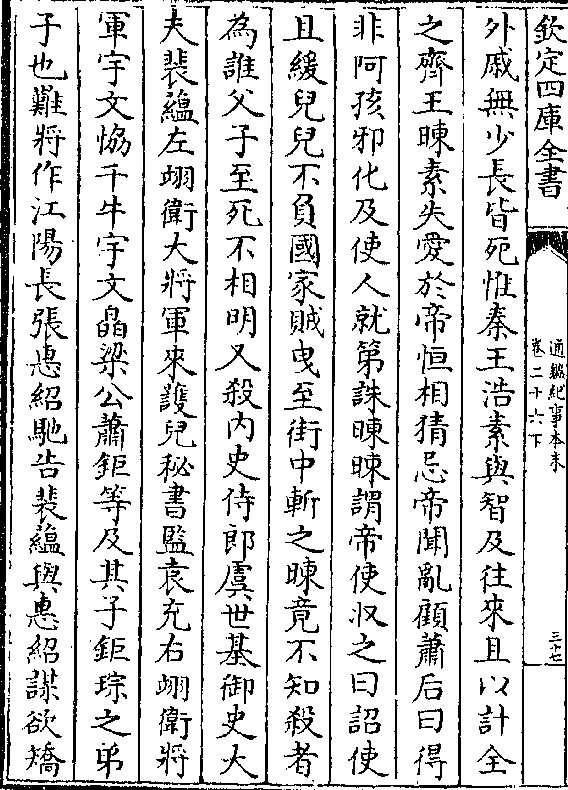 欽定四庫全書
通鑑紀事本末
卷二十六下
三十七
外戚無少長皆死惟秦王浩素與智及往來且以計全
之齊王暕素失愛於帝恒相猜忌帝聞亂顧蕭后曰得
非阿孩邪化及使人就第誅暕暕謂帝使收之曰詔使
且緩兒兒不負國家賊曳至街中斬之暕竟不知殺者
為誰父子至死不相明又殺内史侍郎虞世基御史大
夫裴藴左翊衛大將軍來護兒秘書監袁充右翊衛將
軍宇文協千牛宇文皛梁公蕭鉅等及其子鉅琮之弟
子也難將作江陽長張惠紹馳告裴藴與惠紹謀欲矯